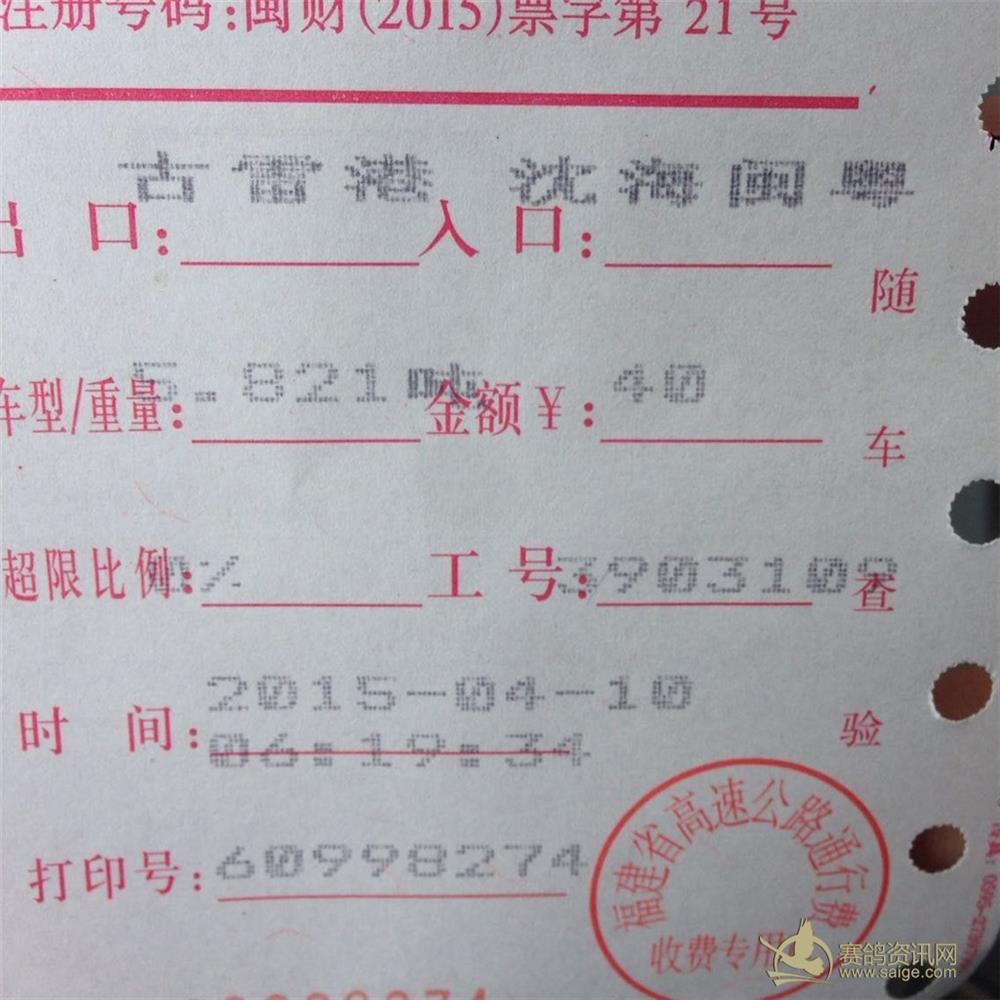 注册号码:闽财(2015)票字第 21 号
古雷港 沈海闽粤
出 口: 入 口:
随车查验
5.821吨 40
车型/重量: 金额￥:
超限比例:0% 工 号:3903109
2015-04-10
时 间:
06:19:34
打印号:60998274
福建省高速公路通行费
收费专用
赛鸽资讯网
www.saige.com